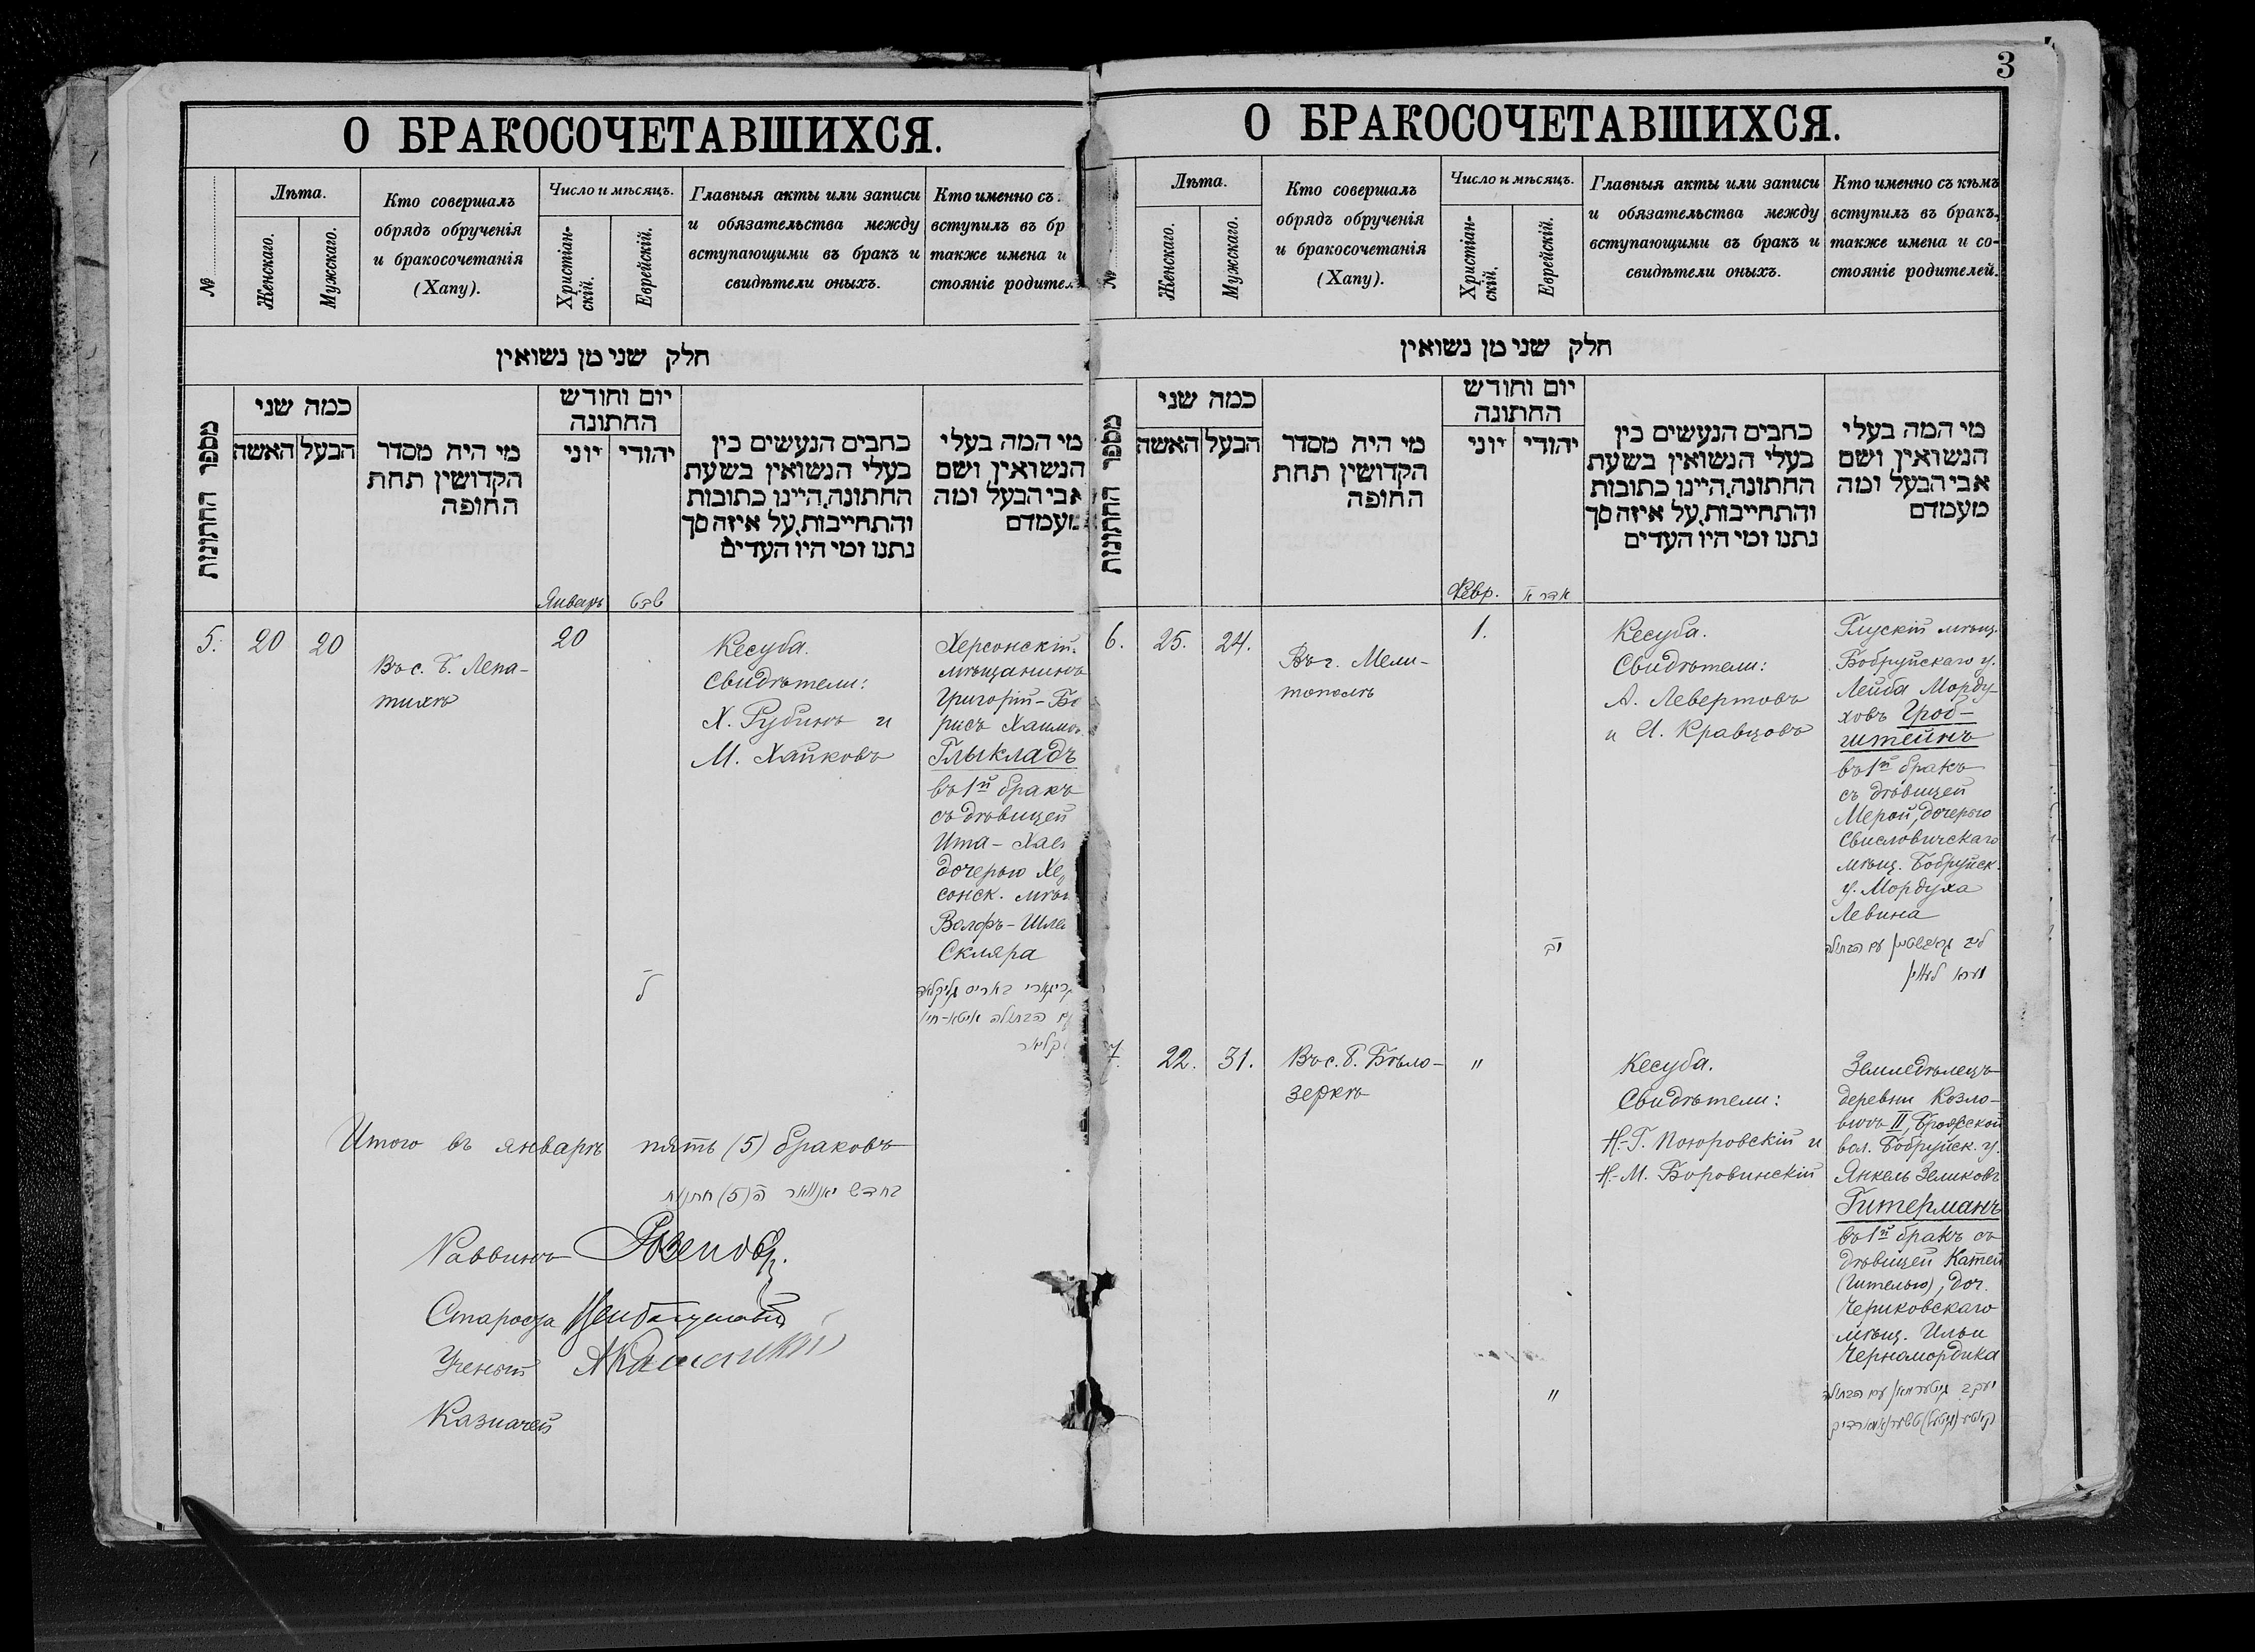 О БРАКОСОЧЕТАВШИХСЯ.
№
Лѣта.
Женскаго.
Мужскаго.
Кто совершалъ
обрядъ обрученія
и бракосочетанія
(Хапу).
Число и мѣсяцъ.
Христіан-
скій.
Еврейскій.
Главныя акты или записи
и обязательства между
вступающими въ бракъ и
свидѣтели оныхъ.
Кто именно съ
вступилъ въ бр
также имена и
стояніе родител
חלק שני מן נשואין
מספר החתונות
כמה שני
האשה
הבעל
מי היה מסדר
הקדושין תחת
החופה
יום וחודש
החתונה
יוני
יהודי
כתבים הנעשים בין
בעלי הנשואין בשעת
החתונה, היינו כתובות
והתחייבות, על איזה סך
נתנו ומי היו העדים
מי המה בעלי
הנשואין ושם
אבי הבעל ומה
מעמדם
Январь
שבט
5.
20
20
Въ с. Б. Лепа-
тихѣ
20
ל
Кесуба.
Свидѣтели:
Х. Рубинъ и
М. Хайковъ
Херсонскій
мѣщанинъ
Григорій-Бо
рисъ Хаимов
Глыкладъ
въ 1й бракъ
съ дѣвицей
Ита-Хая
дочерью Хер
сонск. мѣщ
Волфъ-Шле
Скляра
באריס גליקלאד
הבתולה איטא-חיה
Итого въ январѣ пять (5) браковъ
בחדש יאנוואר ה (5) חתונות
Раввинъ
Староста
Ученый
Казначей
3
О БРАКОСОЧЕТАВШИХСЯ.
№
Лѣта.
Женскаго.
Мужскаго.
Кто совершалъ
обрядъ обрученія
и бракосочетанія
(Хапу).
Число и мѣсяцъ.
Христіан-
скій.
Еврейскій.
Главныя акты или записи
и обязательства между
вступающими въ бракъ и
свидѣтели оныхъ.
Кто именно съ кѣмъ
вступилъ въ бракъ,
также имена и со-
стояніе родителей.
חלק שני מן נשואין
מספר החתונות
כמה שני
האשה
הבעל
מי היה מסדר
הקדושין תחת
החופה
יום וחודש
החתונה
יוני
יהודי
כתבים הנעשים בין
בעלי הנשואין בשעת
החתונה, היינו כתובות
והתחייבות, על איזה סך
נתנו ומי היו העדים
מי המה בעלי
הנשואין ושם
אבי הבעל ומה
מעמדם
Февр.
אדר א
6.
25.
24.
Въ г. Мели-
тополѣ
1.
יב
Кесуба.
Свидѣтели:
А. Левертовъ
и И. Кравцовъ
Глускій мѣщ.
Бобруйскаго у.
Лейба Морду-
ховъ Гроб-
штейнъ
въ 1й бракъ
съ дѣвицей
Мерой, дочерью
Свисловичскаго
мѣщ. Бобруйск.
у. Мордуха
Левина
ליב גראבשטיין עם הבתולה
מערא לעווין
7.
22.
31.
Въ с. Б. Бѣло-
зеркѣ
"
"
Кесуба.
Свидѣтели:
Н.-Г. Поюровскій и
Н.-М. Боровинскій
Земледѣлецъ
деревни Козло-
вичъ II, Брожской
вол. Бобруйск. у.
Янкель Зеликовъ
Гитерманъ
въ 1й бракъ съ
дѣвицей Катей
(Гителью), доч.
Чериковскаго
мѣщ. Ильи
Черномордика
יעקב גיטערמאן עם הבתולה
(גיטל) טשערנאמארדיק